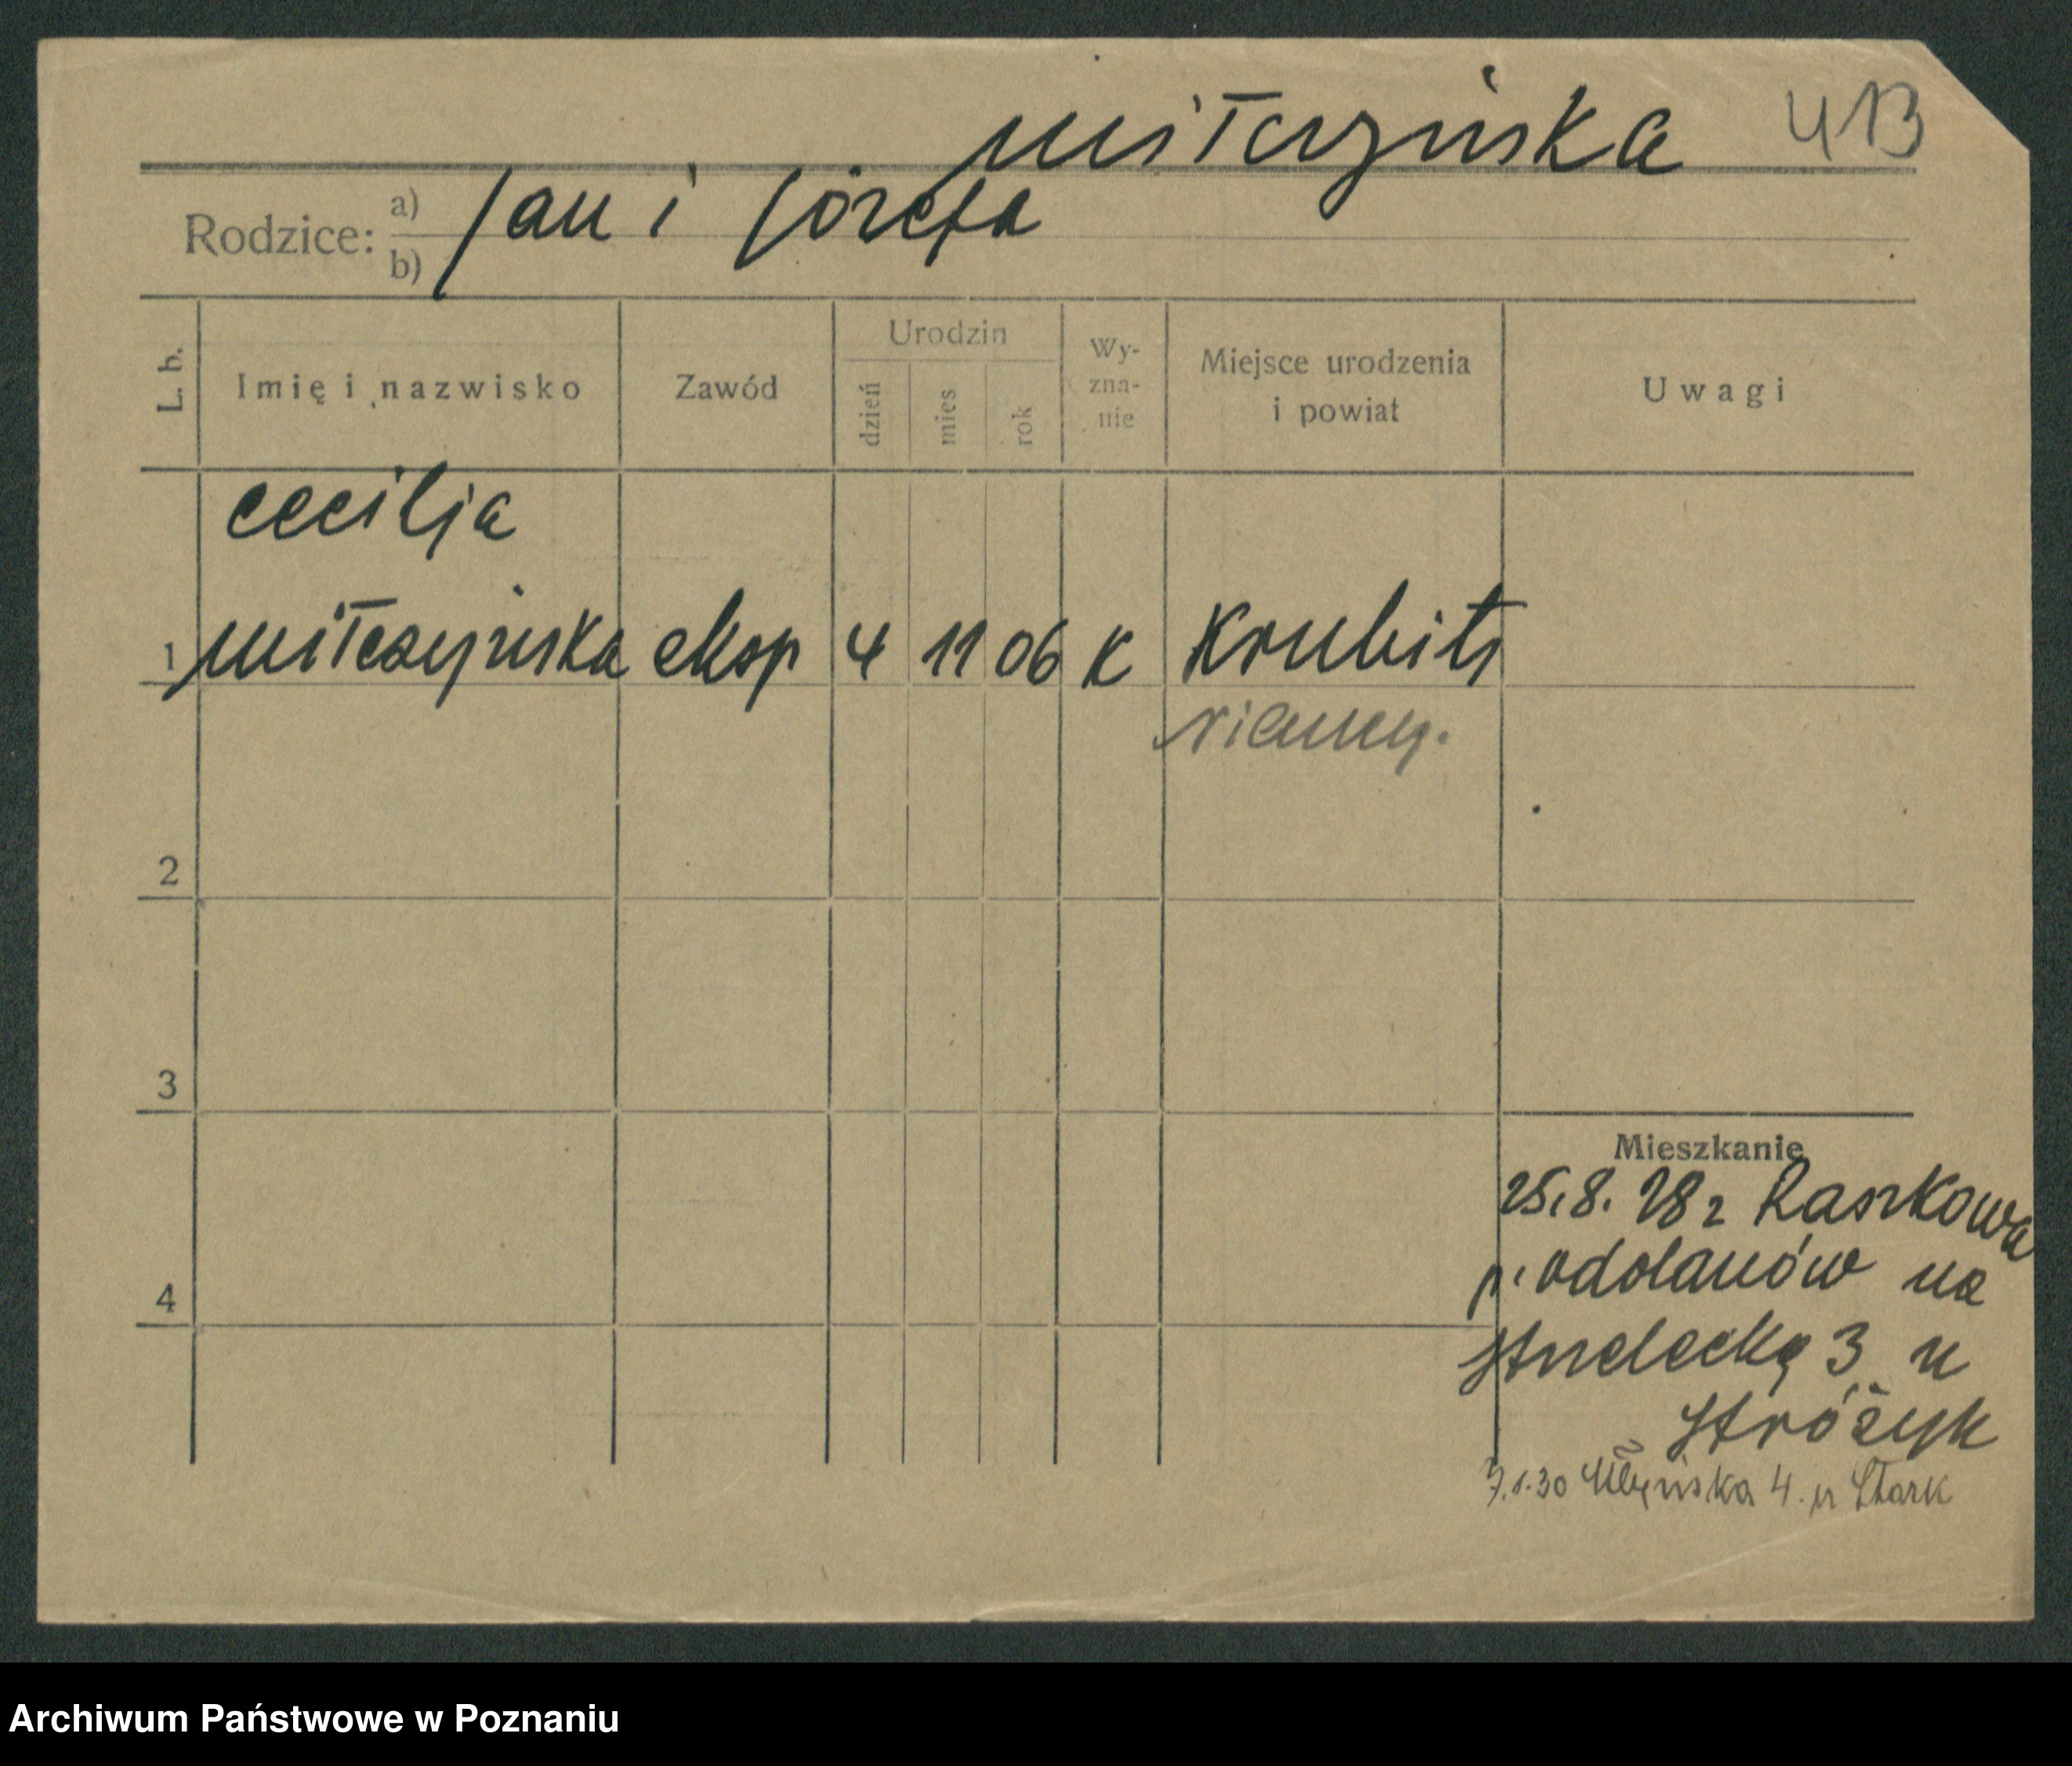 Miłczyńska 413
Rodzice: a) b) Jan i Józefa
L. b.
Imię i nazwisko
Zawód
Urodzin
dzień
mies
rok
Wy-
zna-
nie
Miejsce urodzenia
i powiat
Uwagi
Cecilja
1 Miłczyńska eksp 4 11 06 K
Niemcy.
2
3
4
Mieszkanie
25.8.28 z Raszkowa
p. Odolanów na
Strzelecką 3 u
Stróżyk
7.1.30 Młyńska 4. u Stark
Archiwum Państwowe w Poznaniu